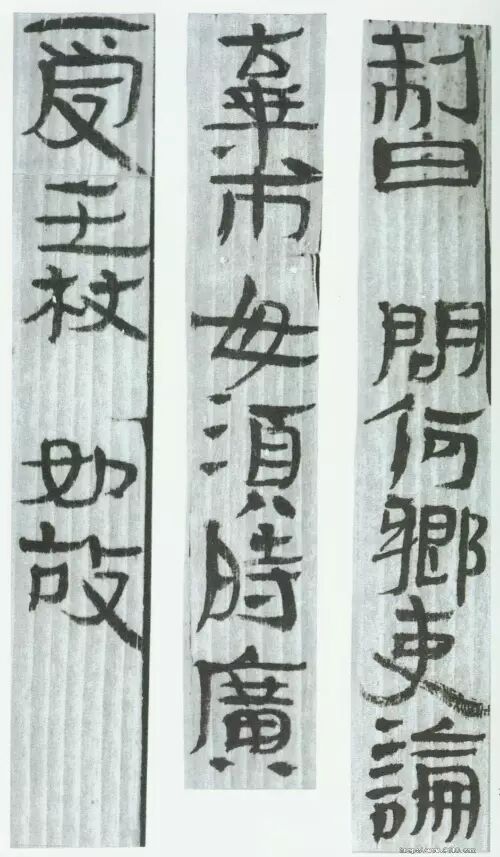 制曰問何鄉吏論
棄市毋須時廣
受王杖如故